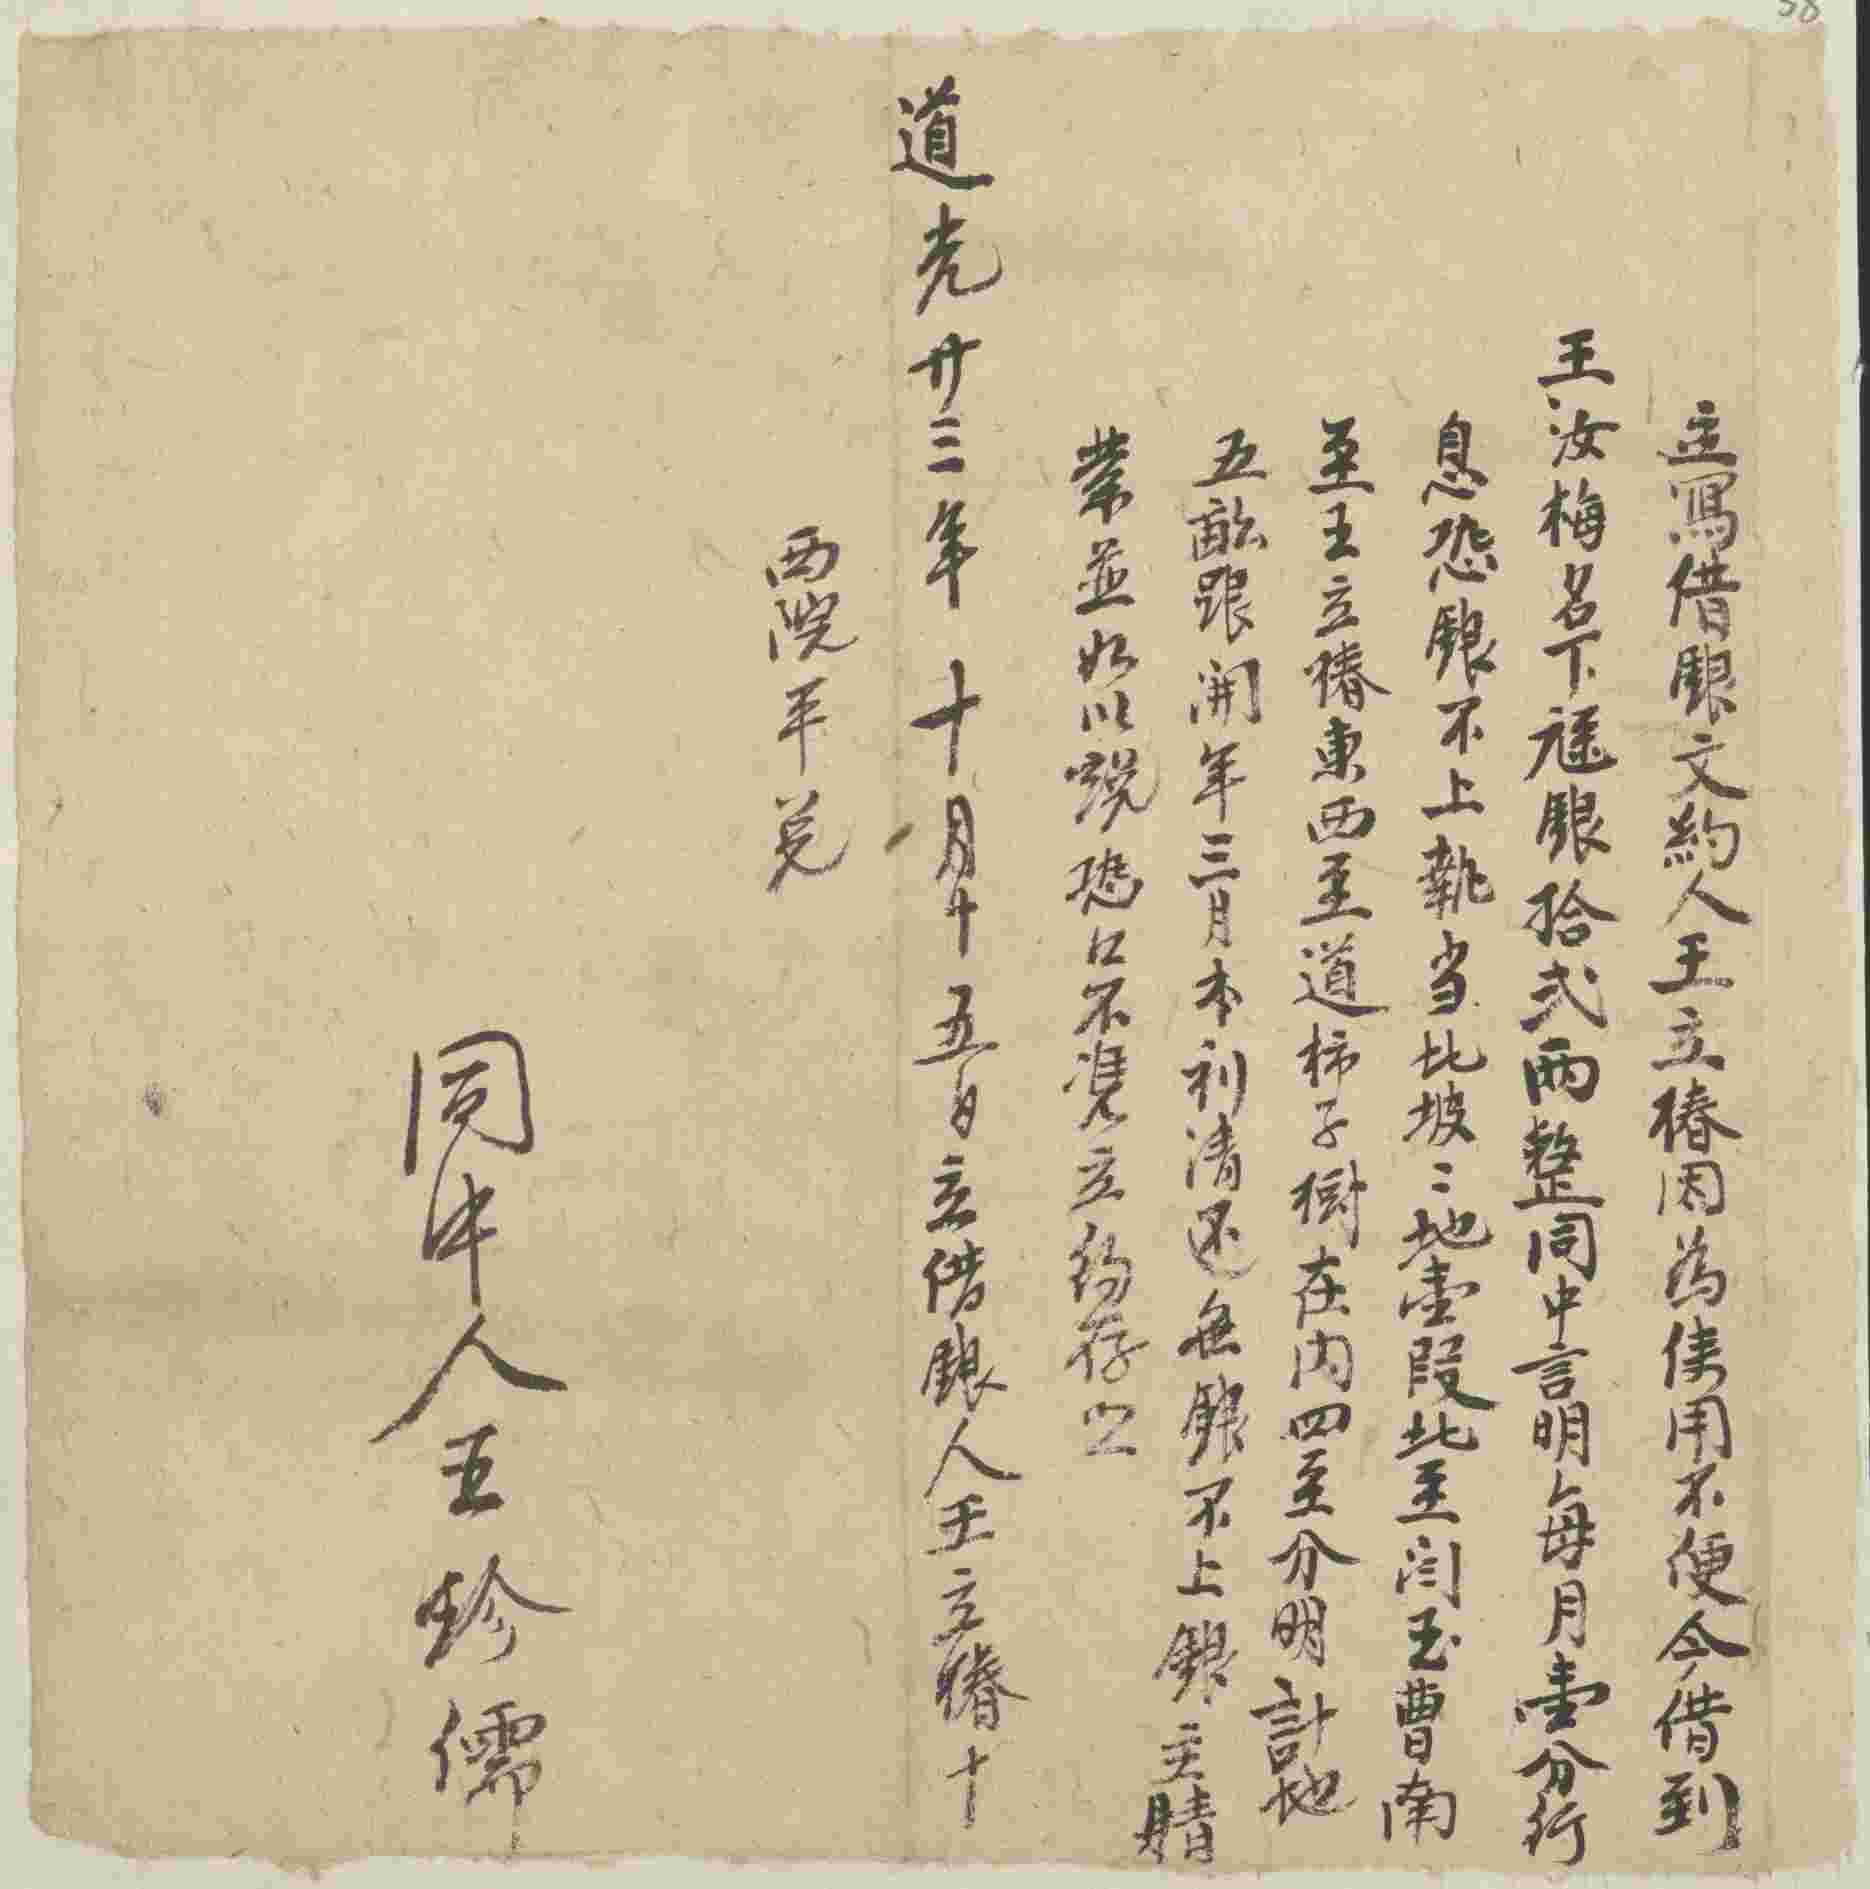 58
立寫借銀文約人王立椿因為使用不便今借到
王汝梅名下禒銀拾弍兩整同中言明每月壹分行
息恐銀不上執当北坡〻地壹段北至闫玉曹南
至王立椿東西至道柿子樹在内四至分明計地
五畝限開年三月本利清还無銀不上銀主睛
業並如以説恐口不凴立約存照
道光廿三年十月十五日立借銀人王立椿十
西院平兑
同中人王珍儒